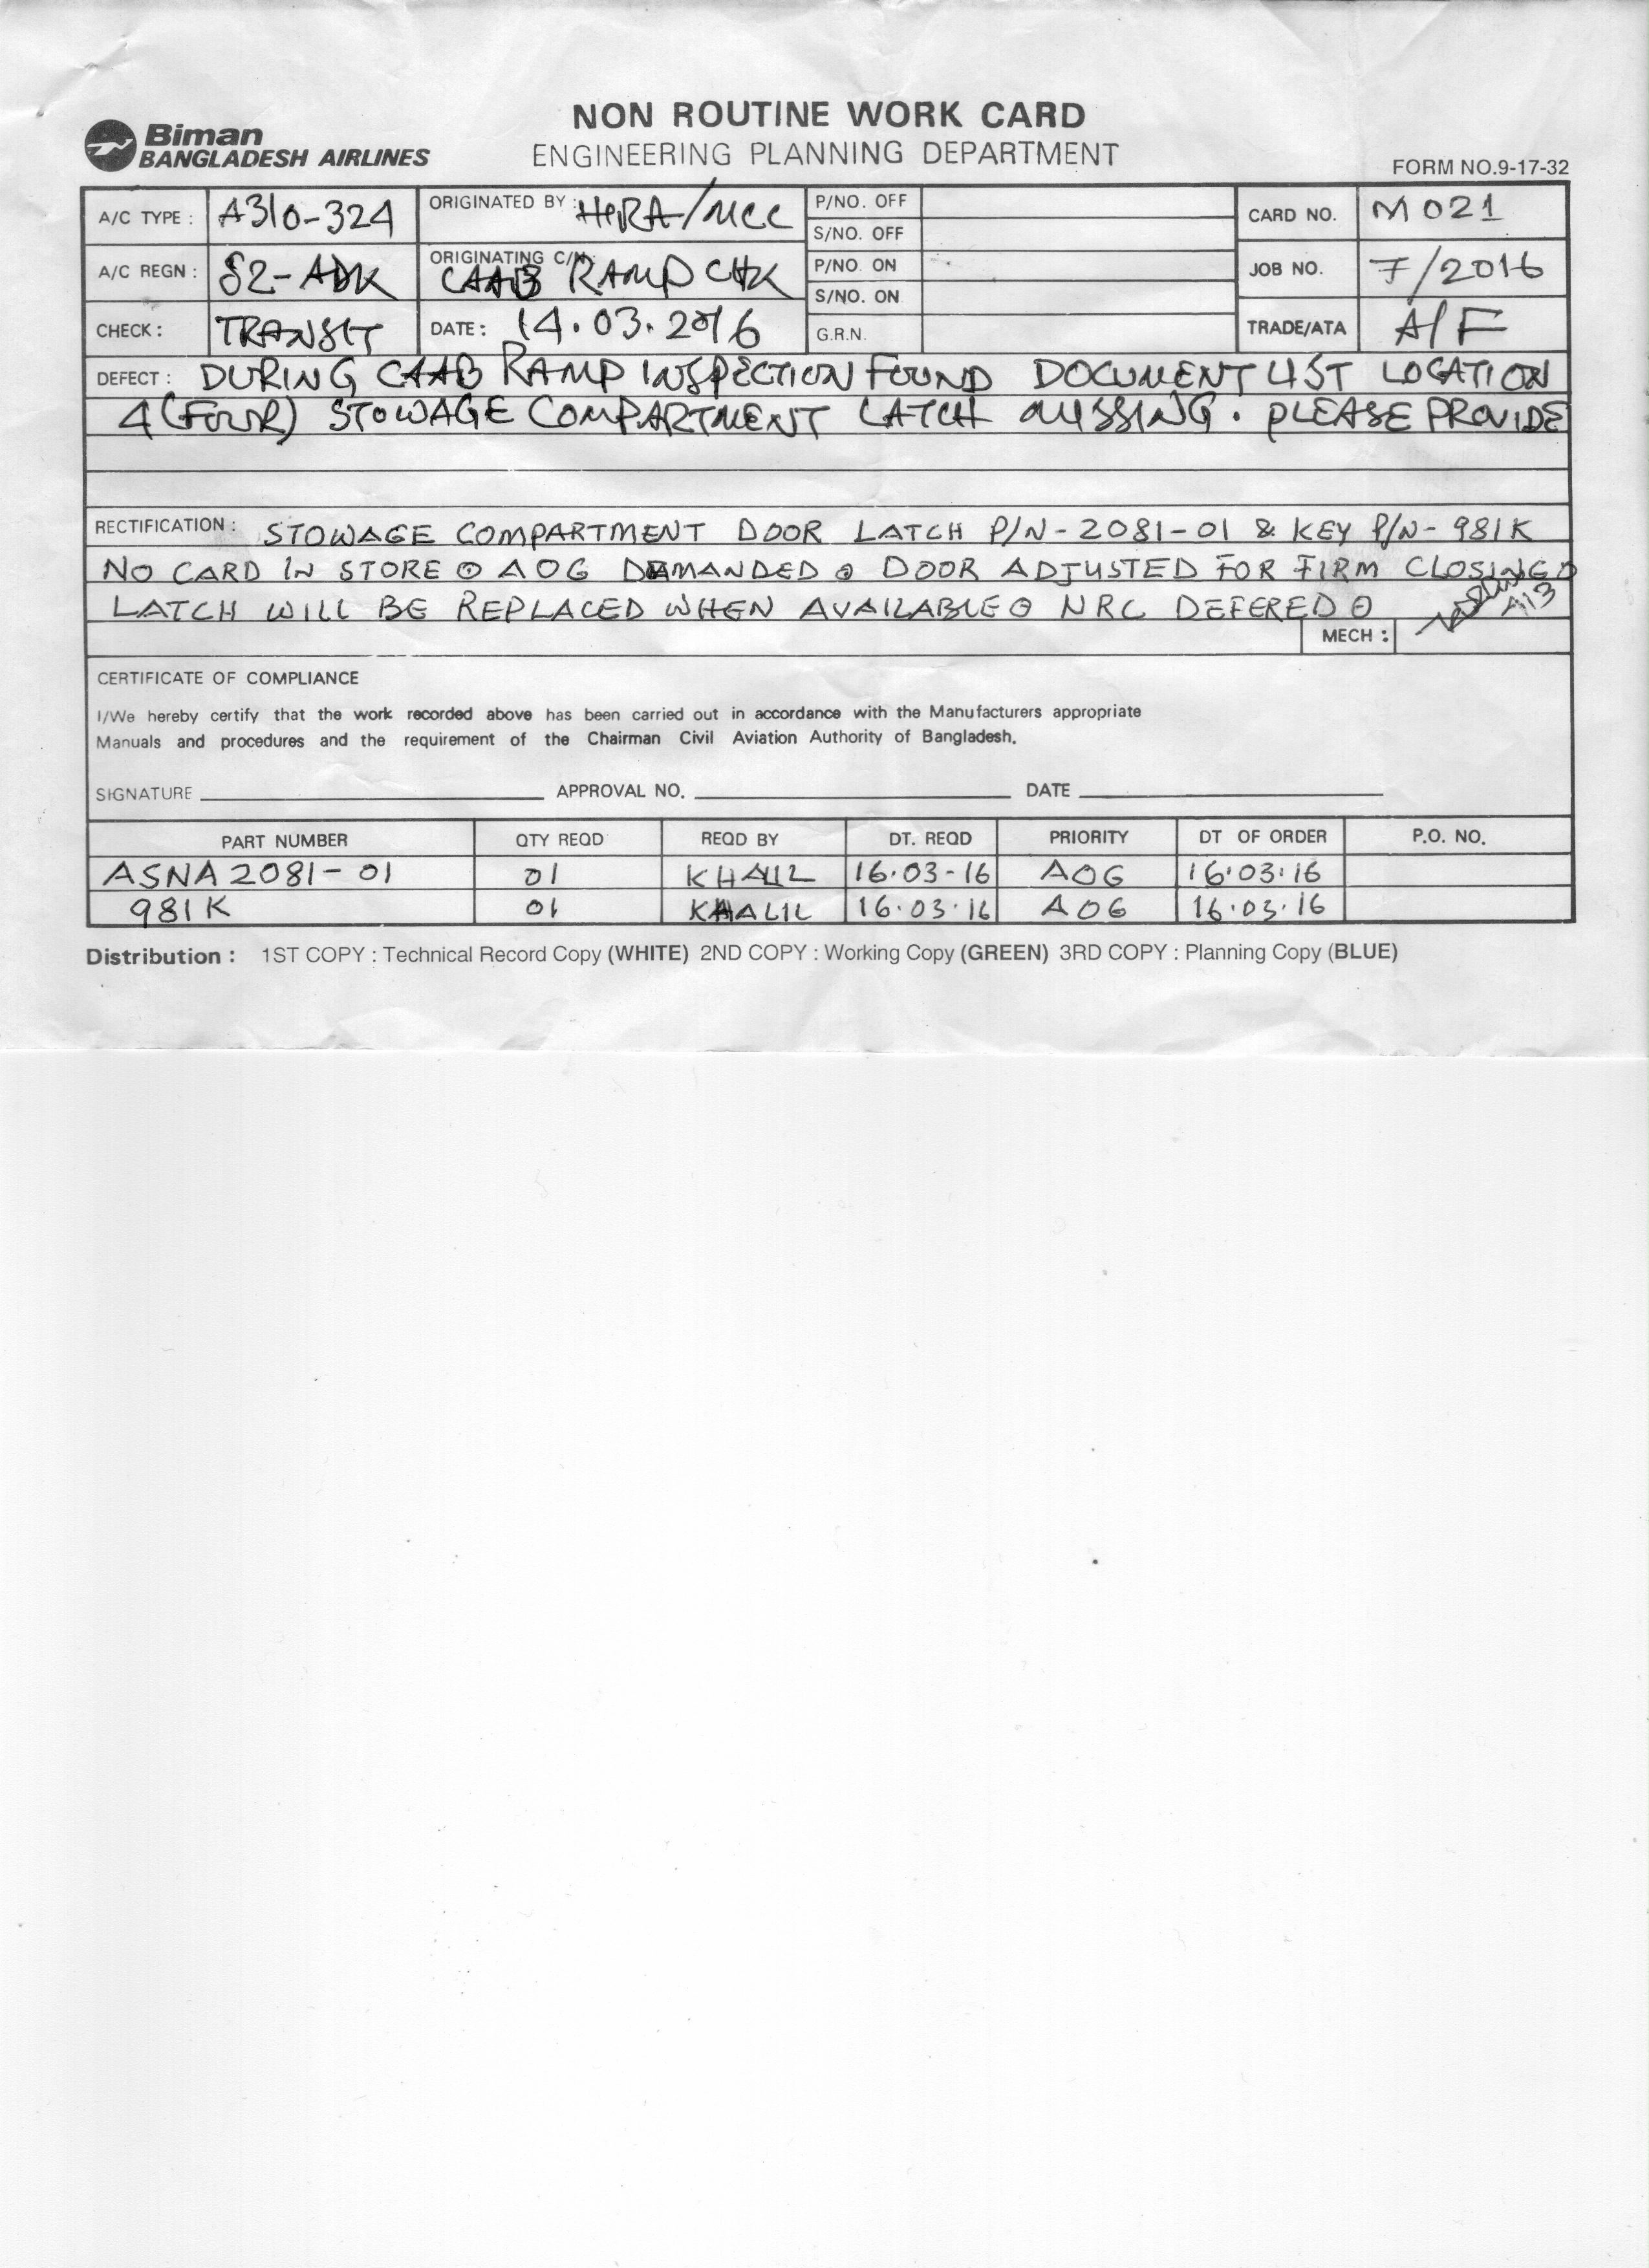 Biman
BANGLADESH AIRLINES
NON ROUTINE WORK CARD
ENGINEERING PLANNING DEPARTMENT
FORM NO.9-17-32
A/C TYPE : A310-324
ORIGINATED BY : HIRA/MCC
P/NO. OFF
S/NO. OFF
CARD NO. M021
A/C REGN : S2-ADK
ORIGINATING C/N: CAAB RAMP CHK
P/NO. ON
S/NO. ON
JOB NO. 7/2016
CHECK : TRANSIT
DATE : 14.03.2016
G.R.N.
TRADE/ATA A/F
DEFECT : DURING CAAB RAMP INSPECTION FOUND DOCUMENT LIST LOCATION
4 (FOUR) STOWAGE COMPARTMENT LATCH MISSING. PLEASE PROVIDE
RECTIFICATION : STOWAGE COMPARTMENT DOOR LATCH P/N-2081-01 & KEY P/N-981K
NO CARD IN STORE ⊙ AOG DEMANDED ⊙ DOOR ADJUSTED FOR FIRM CLOSING ⊙
LATCH WILL BE REPLACED WHEN AVAILABLE ⊙ NRC DEFERED ⊙
A113
MECH :
CERTIFICATE OF COMPLIANCE
I/We hereby certify that the work recorded above has been carried out in accordance with the Manufacturers appropriate
Manuals and procedures and the requirement of the Chairman Civil Aviation Authority of Bangladesh.
SIGNATURE APPROVAL NO. DATE
PART NUMBER QTY REQD REQD BY DT. REQD PRIORITY DT OF ORDER P.O. NO.
ASNA2081-01 01 KHALIL 16.03-16 AOG 16.03.16
981K 01 KHALIL 16.03.16 AOG 16.03.16
Distribution : 1ST COPY : Technical Record Copy (WHITE) 2ND COPY : Working Copy (GREEN) 3RD COPY : Planning Copy (BLUE)